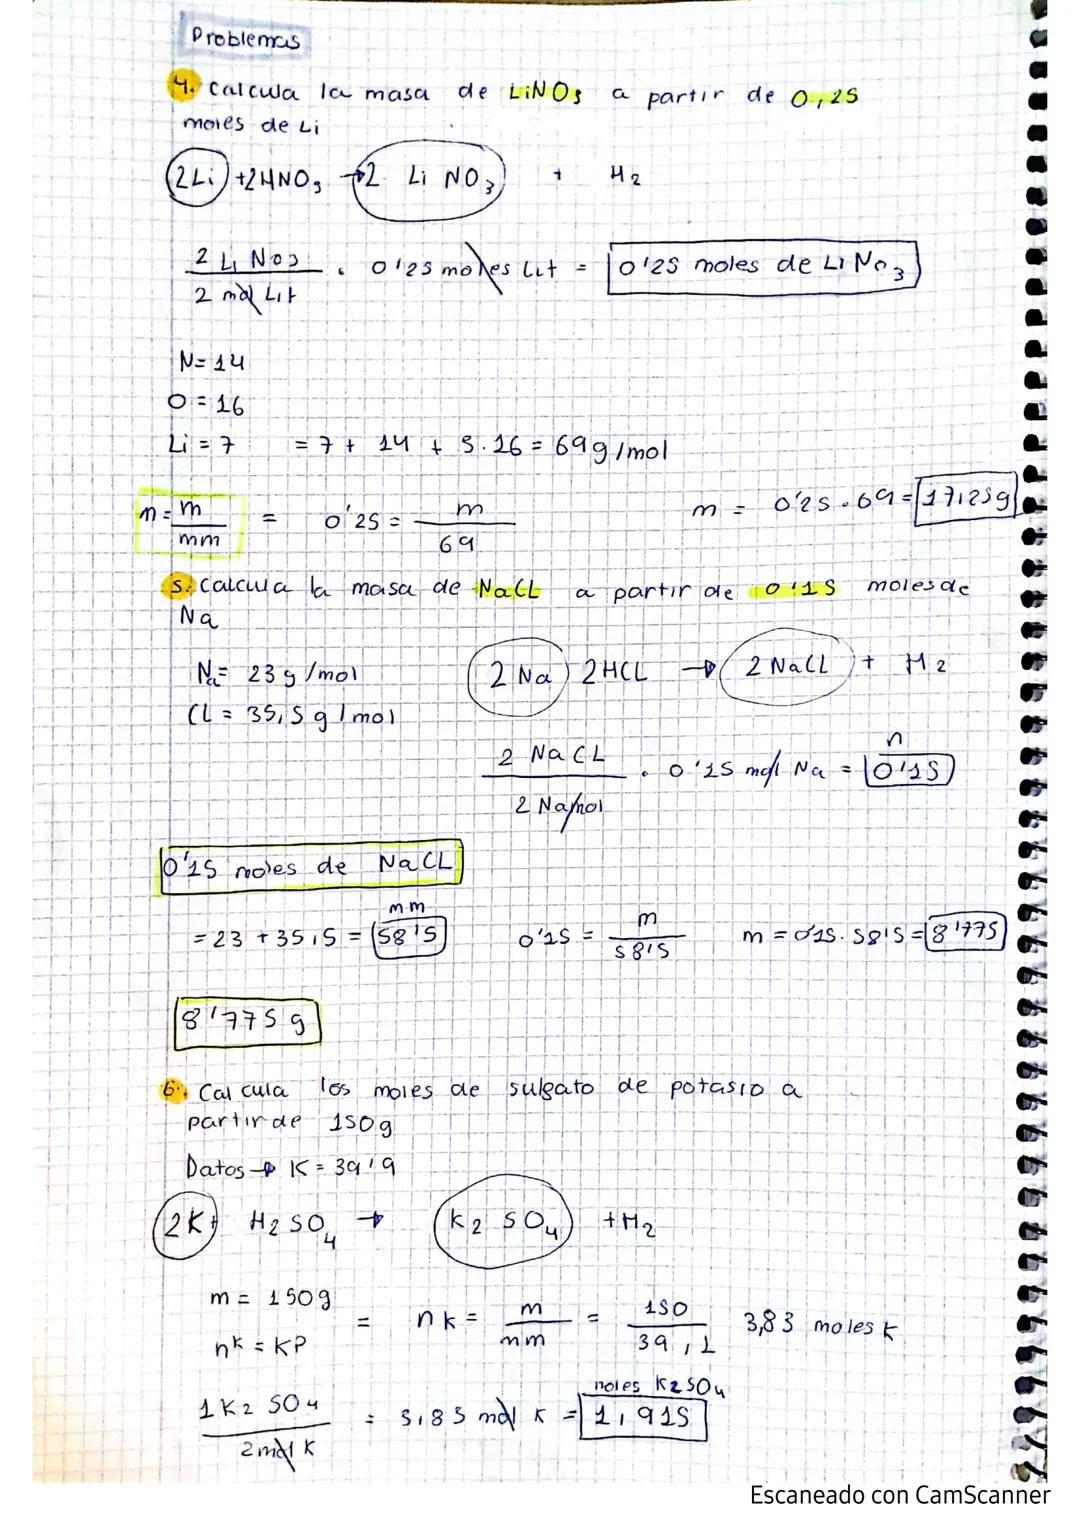 Problemas
4. Calcula la masa de LiNO3 a partir de 0,25
moles de Li
2Li + 2HNO3 → 2 LiNO3 + H2
2 LiNO3 / 2 mol Lit · 0'25 moles Lit = 0'25 moles de LiNO3
N = 14
O = 16
Li = 7 = 7 + 14 + 3·16 = 69 g/mol
n = m/mm = 0'25 = m/69 m = 0'25 · 69 = 17,25g
5. Calcula la masa de NaCL a partir de 0'15 moles de
Na
Na = 23 g/mol 2 Na 2HCL → 2 NaCL + H2
CL = 35,5 g/mol
2 NaCL / 2 Na mol · 0'15 mol Na = 0'15 n
0'15 moles de NaCL
= 23 + 35,5 = 58'5 mm 0'15 = m/58'5 m = 0'15 · 58'5 = 8'775
8'775 g
6. Calcula los moles de sulfato de potasio a
partir de 150g
Datos → K = 39'9
2K + H2SO4 → K2SO4 + H2
m = 150g = nK = m/mm = 150/39,1 3,83 moles K
nK = KP
1 K2SO4 / 2 mol K = 3,83 mol K = 1,915 moles K2SO4
Escaneado con CamScanner